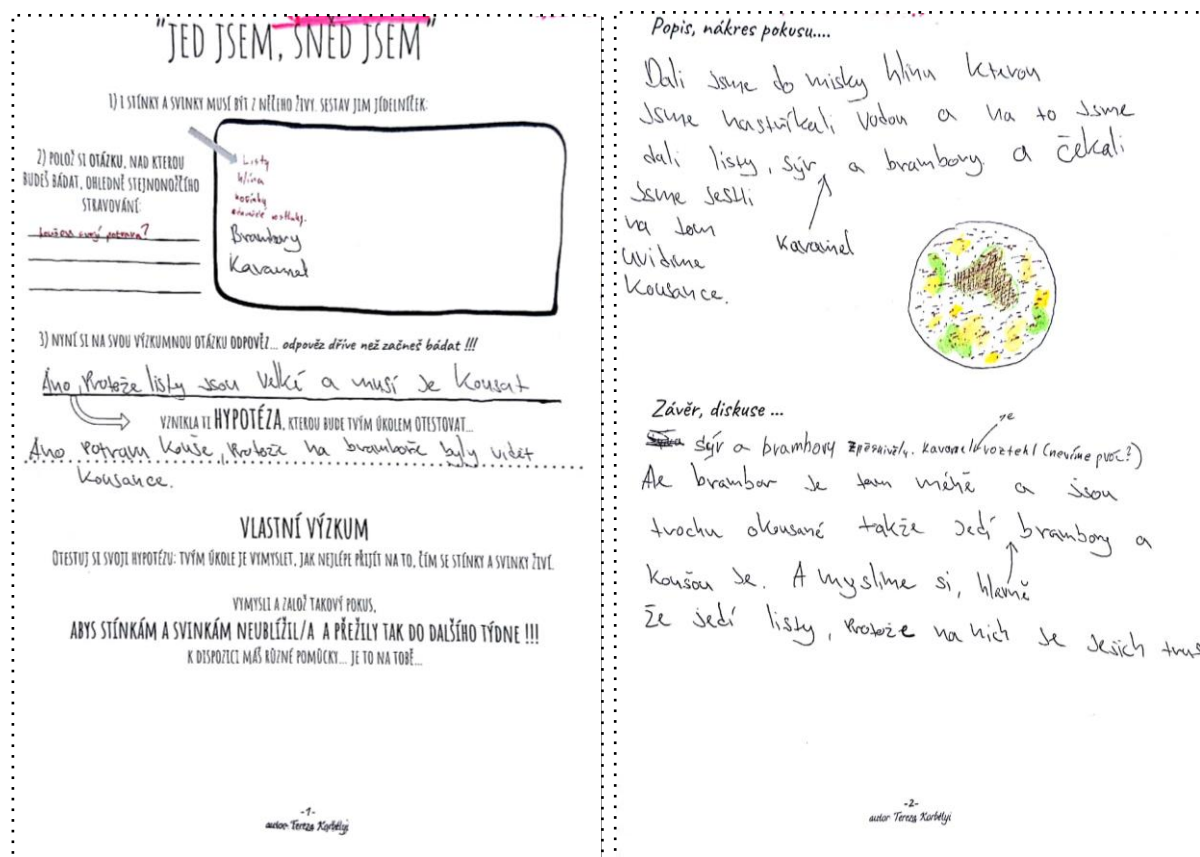 "JED JSEM, SNĚD JSEM"
1) I STÍNKY A SVINKY MUSÍ BÝT Z NĚČEHO ŽIVY. SESTAV JIM JÍDELNÍČEK:
Listy
hlína
Brambory
Karamel
2) POLOŽ SI OTÁZKU, NAD KTEROU
BUDEŠ BÁDAT, OHLEDNĚ STEJNONOŽČÍHO
STRAVOVÁNÍ:
koušou svojí potravu?
3) NYNÍ SI NA SVOU VÝZKUMNOU OTÁZKU ODPOVĚZ... odpověz dříve než začneš bádat !!!
Áno, Protože listy jsou velké a musí je kousat
VZNIKLA TI HYPOTÉZA, KTEROU BUDE TVÝM ÚKOLEM OTESTOVAT...
Áno Potravu kouše, Protože na bramboře byly vidět
kousance.
VLASTNÍ VÝZKUM
OTESTUJ SI SVOJI HYPOTÉZU: TVÝM ÚKOLE JE VYMYSLET, JAK NEJLÉPE PŘIJÍT NA TO, ČÍM SE STÍNKY A SVINKY ŽIVÍ.
VYMYSLI A ZALOŽ TAKOVÝ POKUS,
ABYS STÍNKÁM A SVINKÁM NEUBLÍŽIL/A A PŘEŽILY TAK DO DALŠÍHO TÝDNE !!!
K DISPOZICI MÁŠ RŮZNÉ POMŮCKY... JE TO NA TOBĚ...
-1-
autor: Tereza Korbélyi
Popis, nákres pokusu....
Dali jsme do misky hlínu kterou
jsme nastříkali vodou a na to jsme
dali listy, sýr, a brambory. a čekali
jsme jestli
na tom
uvidíme
kousance.
karamel
Závěr, diskuse ...
sýr a brambory zplesnivěly. karamel se roztekl (nevíme proč?)
Ale brambor je tam méně a jsou
trochu okousané takže jedí brambory a
koušou je. A myslíme si, hlavně
že jedí listy, Protože na nich je jejich trus
-2-
autor: Tereza Korbélyi